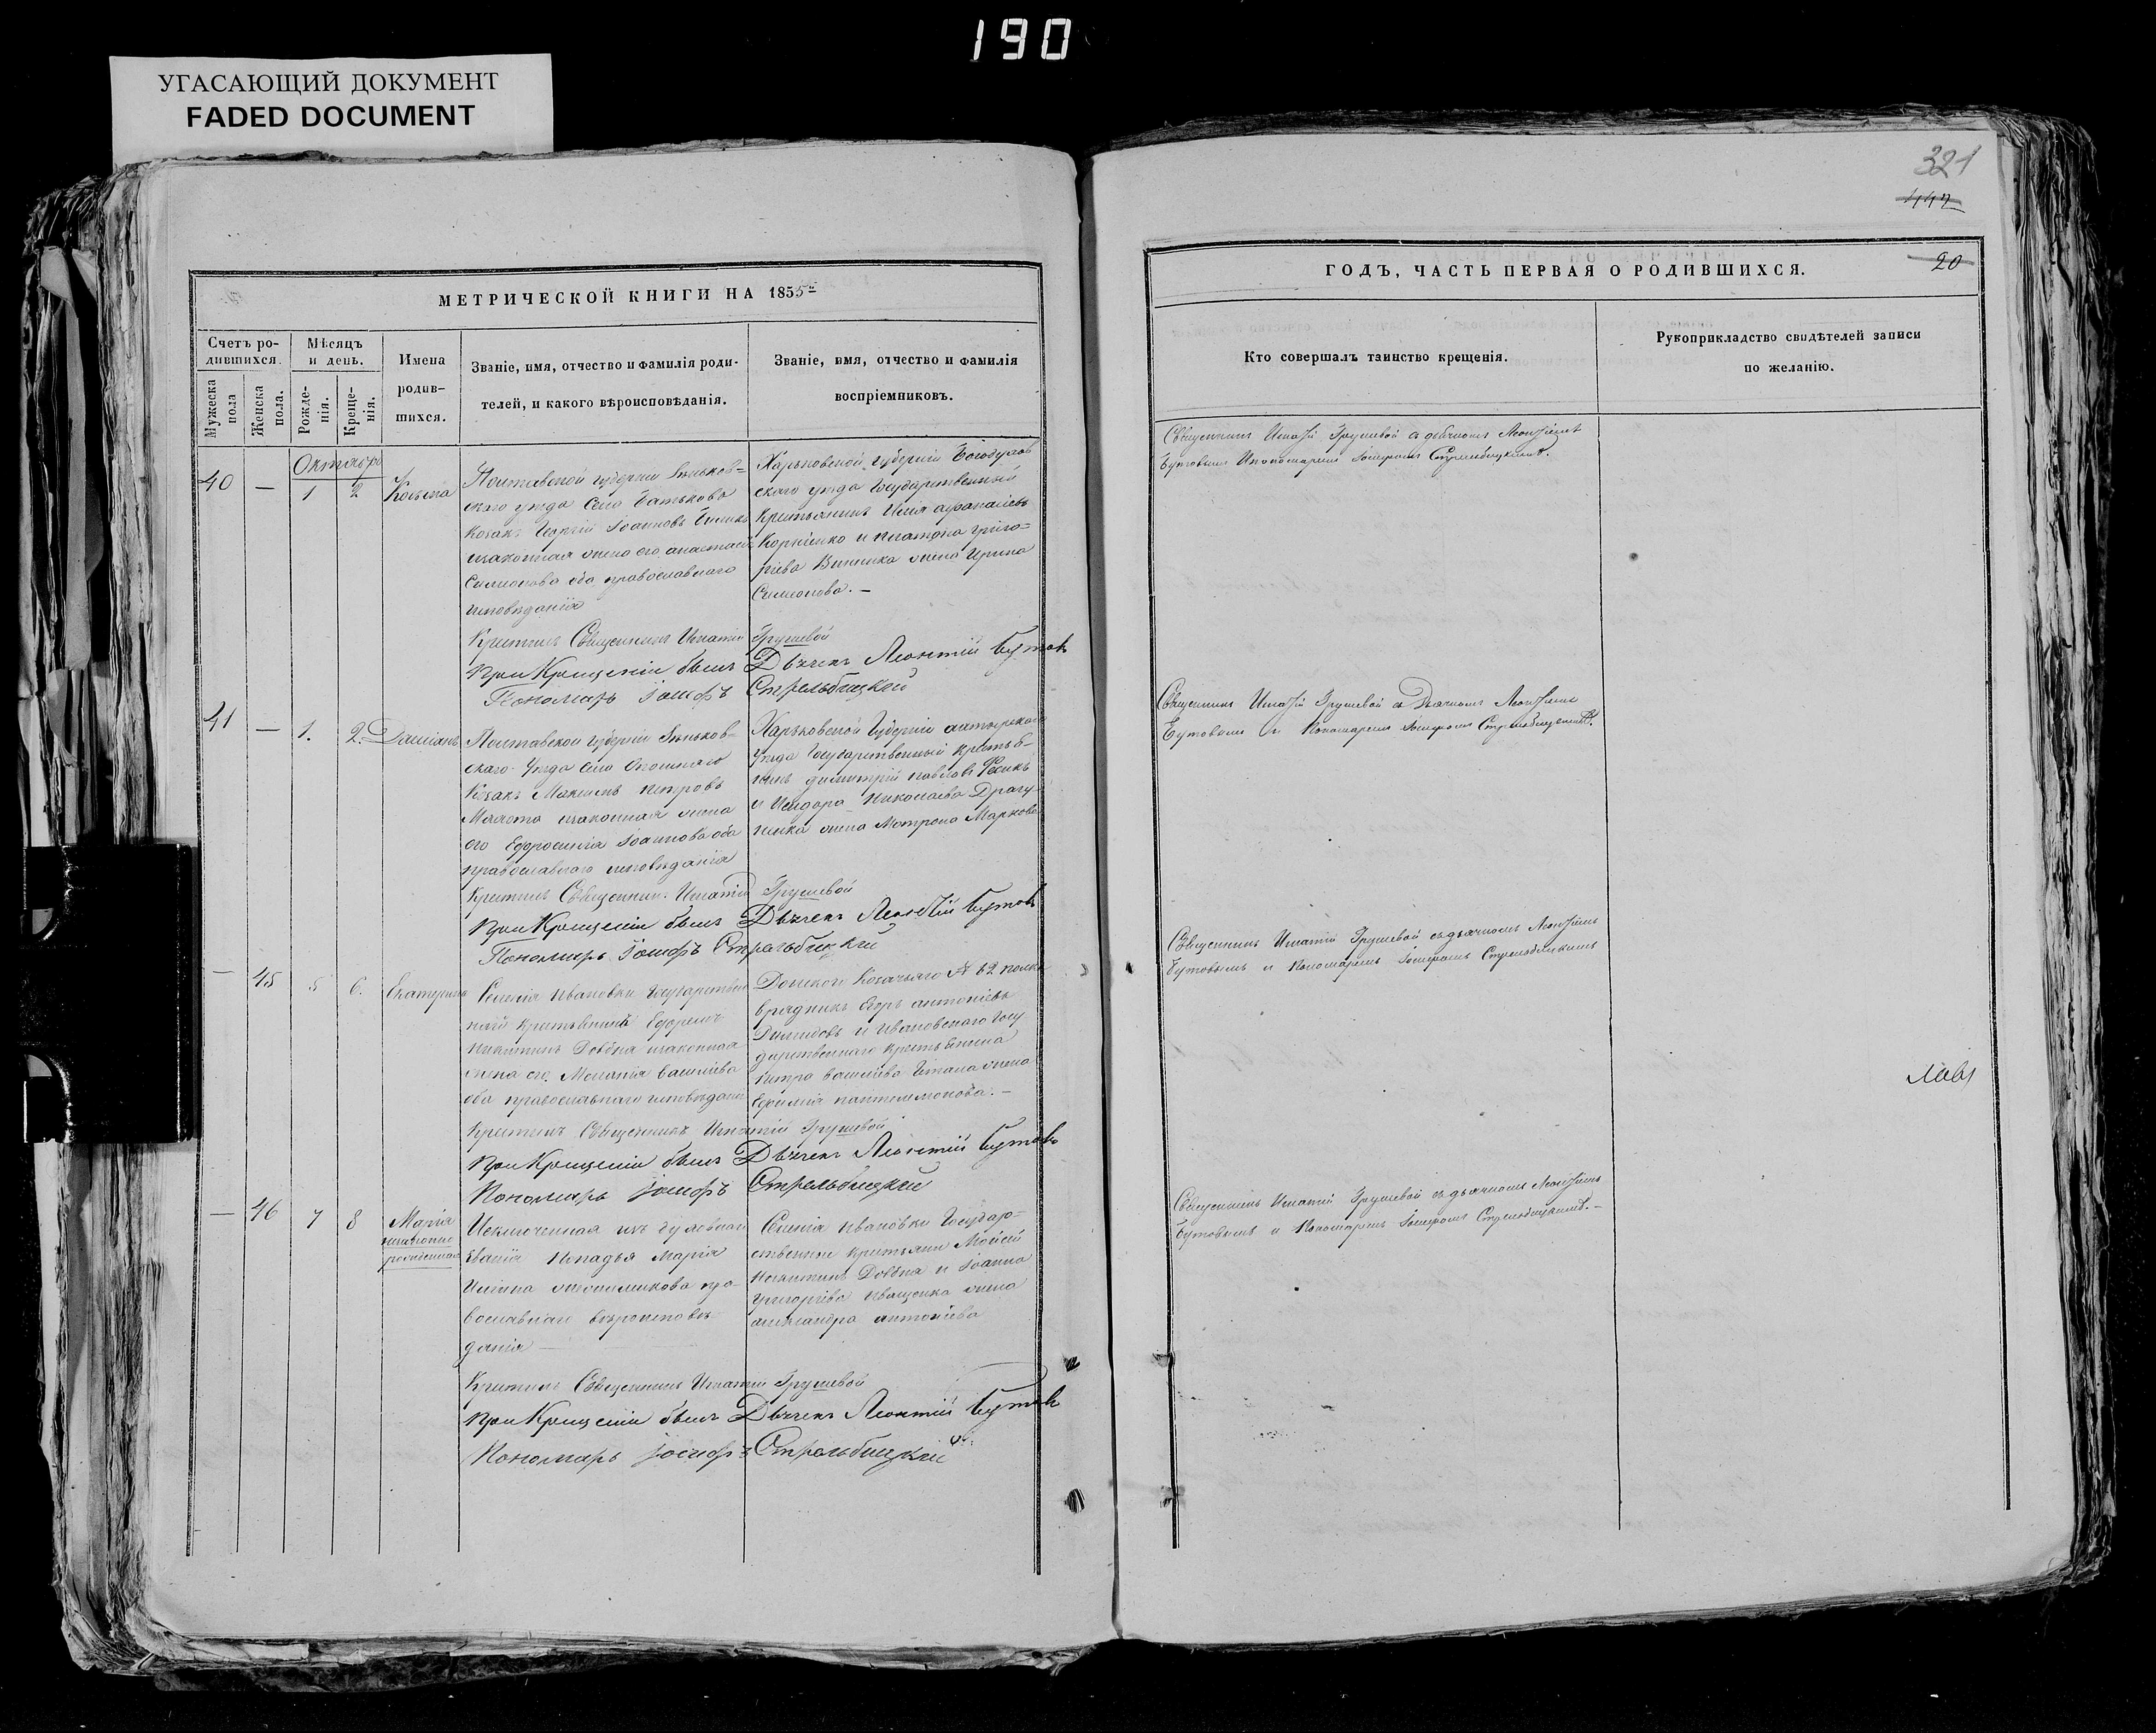 190
УГАСАЮЩИЙ ДОКУМЕНТ
FADED DOCUMENT
МЕТРИЧЕСКОЙ КНИГИ НА 1855
Счетъ ро-
дившихся.
Мужеска
пола
Женска
пола.
Мѣсяцъ
и день.
Рожде-
нія.
Креще-
нія.
Имена
родив-
шихся.
Званіе, имя, отчество и фамилія роди-
телей, и какого вѣроисповѣданія.
Званіе, имя, отчество и фамилія
воспріемниковъ.
Октябрь
40 — 1 2 Косьма
Полтавской губерніи Зѣньков-
скаго уѣзда Села Батькова
Козакъ Георгій Іоанновъ
законная жена его Анастасія
Симонова оба православнаго
исповѣданія
Харьковской губерніи Богодухов
скаго уѣзда Государственный
Крестьянинъ Илія Афанасіевъ
Корніенко и Платона Григо-
ріева Винника жена Ирина
Симонова. —
Крестилъ Священникъ Игнатій Грушевой
При Крещеніи былъ Дьячекъ Леонтій Бутовъ
Пономарь Іосифъ Стрельбицкій
41 — 1. 2. Даміанъ
Полтавской губерніи Зѣньков-
скаго Уѣзда Села Опошнаго
Козакъ Максимъ Петровъ
законная жена
его Ефросинія Іоаннова оба
православнаго исповѣданія
Харьковской Губерніи Ахтырскаго
Уѣзда Государственный Крестья-
нинъ Димитрій Павловъ Фесикъ
и Исидора Николаева Драгу-
жена Мотрона Маркова
Крестилъ Священникъ Игнатій Грушевой
При Крещеніи былъ Дьячекъ Леонтій Бутовъ
Пономарь Іосифъ Стрельбицкій
— 45 5 6. Екатерина
Селенія Ивановки Государствен
ный Крестьянинъ Ефремъ
Никитинъ Довбня законная
жена его Меланія Василіева
оба православнаго исповѣданія
Донского Козачьяго № 62 полка
Урядникъ Егоръ Антоніевъ
Демидовъ и Ивановскаго Госу
дарственнаго Крестьянина
Петра Василіева жена
Ефимія Пантелимонова. —
Крестилъ Священникъ Игнатій Грушевой
При Крещеніи былъ Дьячекъ Леонтій Бутовъ
Пономарь Іосифъ Стрельбицкій
— 46 7 8 Марія
незаконно
рожденная
Исключенная изъ духовнаго
званія Попадья Марія
пра-
вославнаго вѣроисповѣ-
данія
Селенія Ивановки Государ-
ственный Крестьянин Мойсей
Никитинъ Довбня и Іоанна
Григоріева Иващенка жена
Александра Антоніева
Крестилъ Священникъ Игнатій Грушевой
При Крещеніи былъ Дьячекъ Леонтій Бутовъ
Пономарь Іосифъ Стрельбицкій
321
447
20
ГОДЪ, ЧАСТЬ ПЕРВАЯ О РОДИВШИХСЯ.
Кто совершалъ таинство крещенія.
Рукоприкладство свидѣтелей записи
по желанію.
Священникъ Игнатій Грушевой с дьячкомъ Леонтіемъ
Бутовымъ и пономаремъ Іосифомъ Стрельбицкимъ.
Священникъ Игнатій Грушевой с Дьячкомъ Леонтіемъ
Бутовымъ и Пономаремъ Іосифомъ Стрельбицкимъ.
Священникъ Игнатій Грушевой съ дьячкомъ Леонтіемъ
Бутовымъ и Пономаремъ Іосифомъ Стрельбицкимъ
Священникъ Игнатій Грушевой съ дьячкомъ Леонтіемъ
Бутовымъ и Пономаремъ Іосифомъ Стрельбицкимъ. —